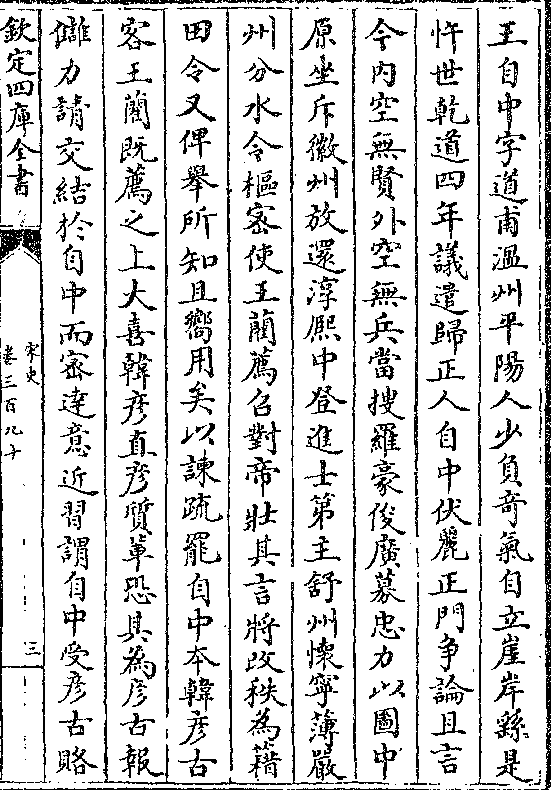 王自中字道甫溫州平陽人少負奇氣自立崖岸繇是
忤世乾道四年議遣歸正人自中伏麗正門爭論且言
今內空無賢外空無兵當搜羅豪俊廣募忠力以圖中
原坐斥徽州放還淳熙中登進士第主舒州懷寧薄嚴
州分水令樞密使王藺薦召對帝壯其言將改秩為藉
田令又俾舉所知且嚮用矣以諫疏罷自中本韓彥古
客王藺既薦之上大喜韓彥直彥質輩恐其為彥古報
讎力請交結於自中而密達意近習謂自中受彥古賂
欽定四庫全書
宋史
卷三百九十
三